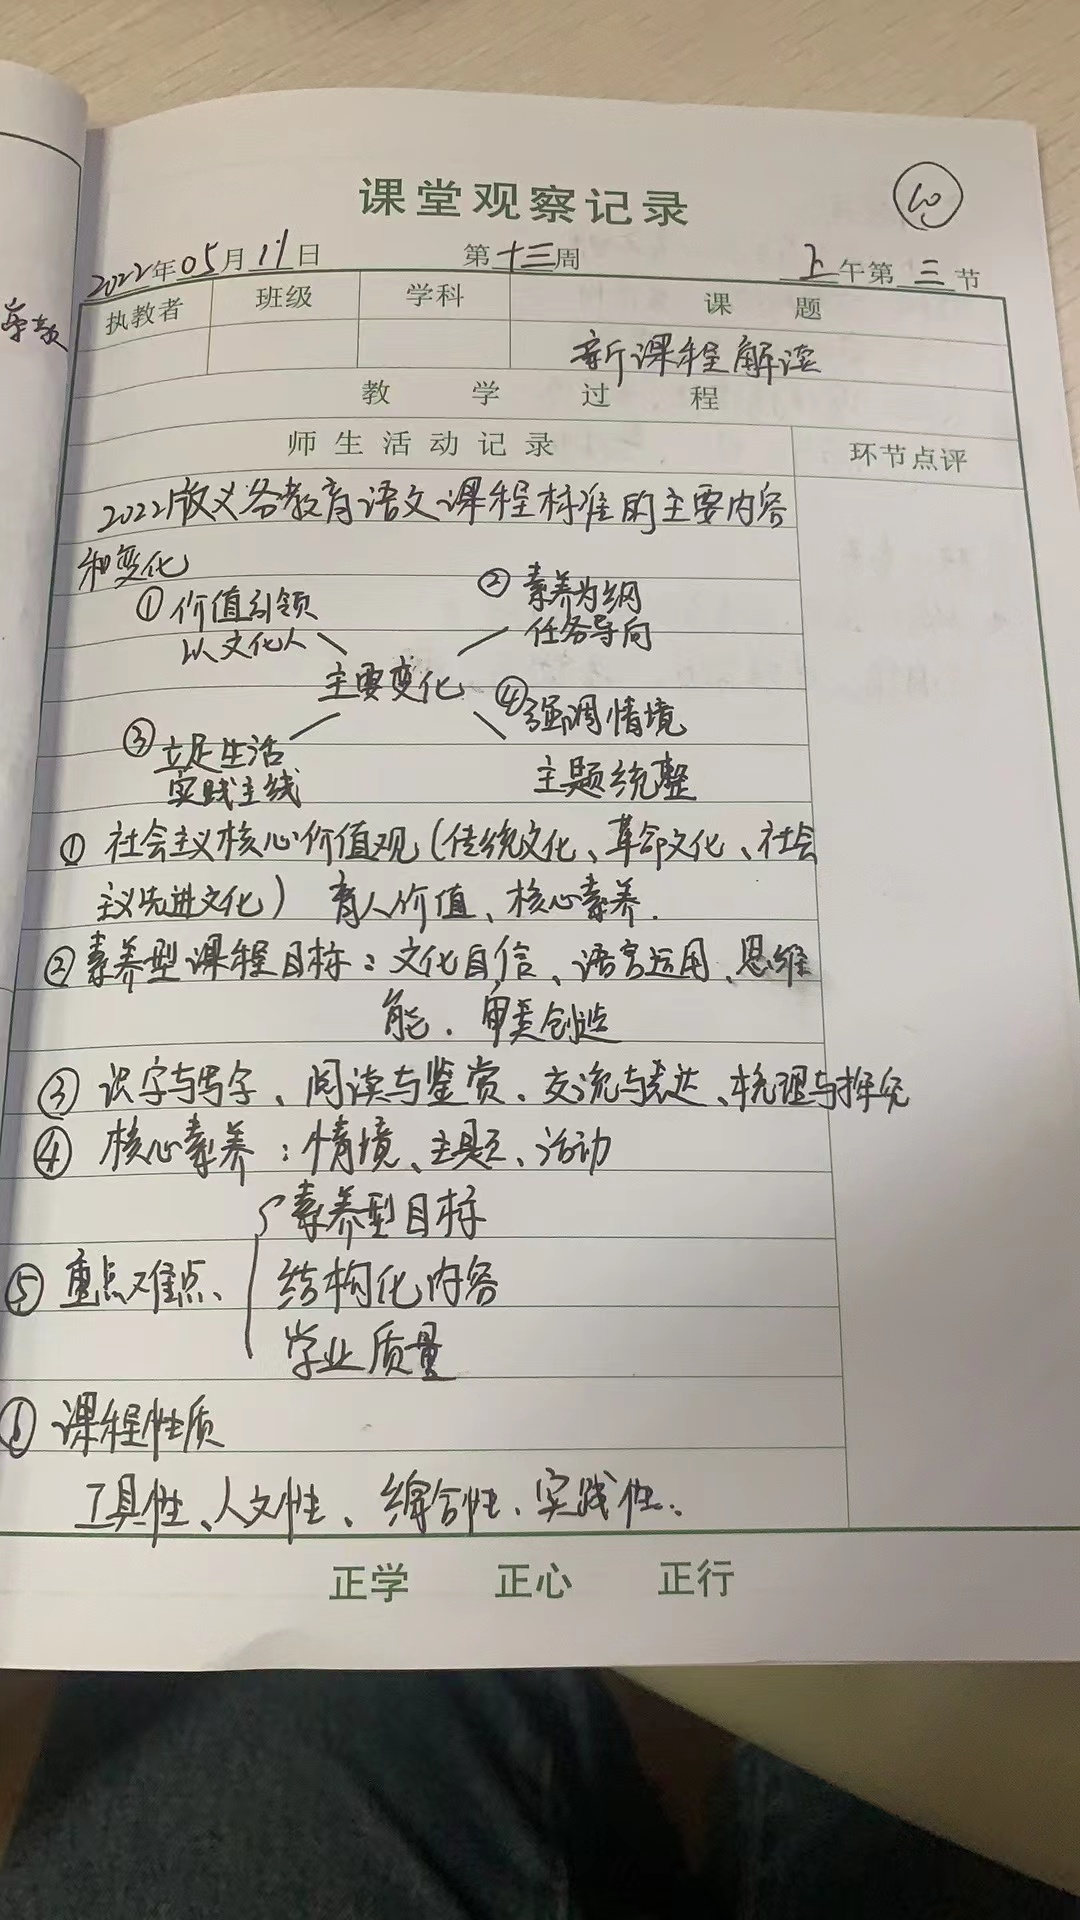 课堂观察记录
10
2022年05月11日 第十三周 上午第三节
执教者 班级 学科 课题
新课程解读
教学过程
师生活动记录 环节点评
2022版义务教育语文课程标准的主要内容
和变化
①价值引领 ②素养为纲
以文化人 任务导向
主要变化
③立足生活 ④强调情境
实践主线 主题统整
①社会主义核心价值观(传统文化、革命文化、社会
主义先进文化) 育人价值、核心素养.
②素养型课程目标:文化自信、语言运用、思维
能.审美创造
③识字与写字、阅读与鉴赏.交流与表达、梳理与探究
④核心素养:情境、主题、活动
素养型目标
⑤重点难点、结构化内容
学业质量
⑥课程性质
工具性、人文性、综合性、实践性.
正学 正心 正行